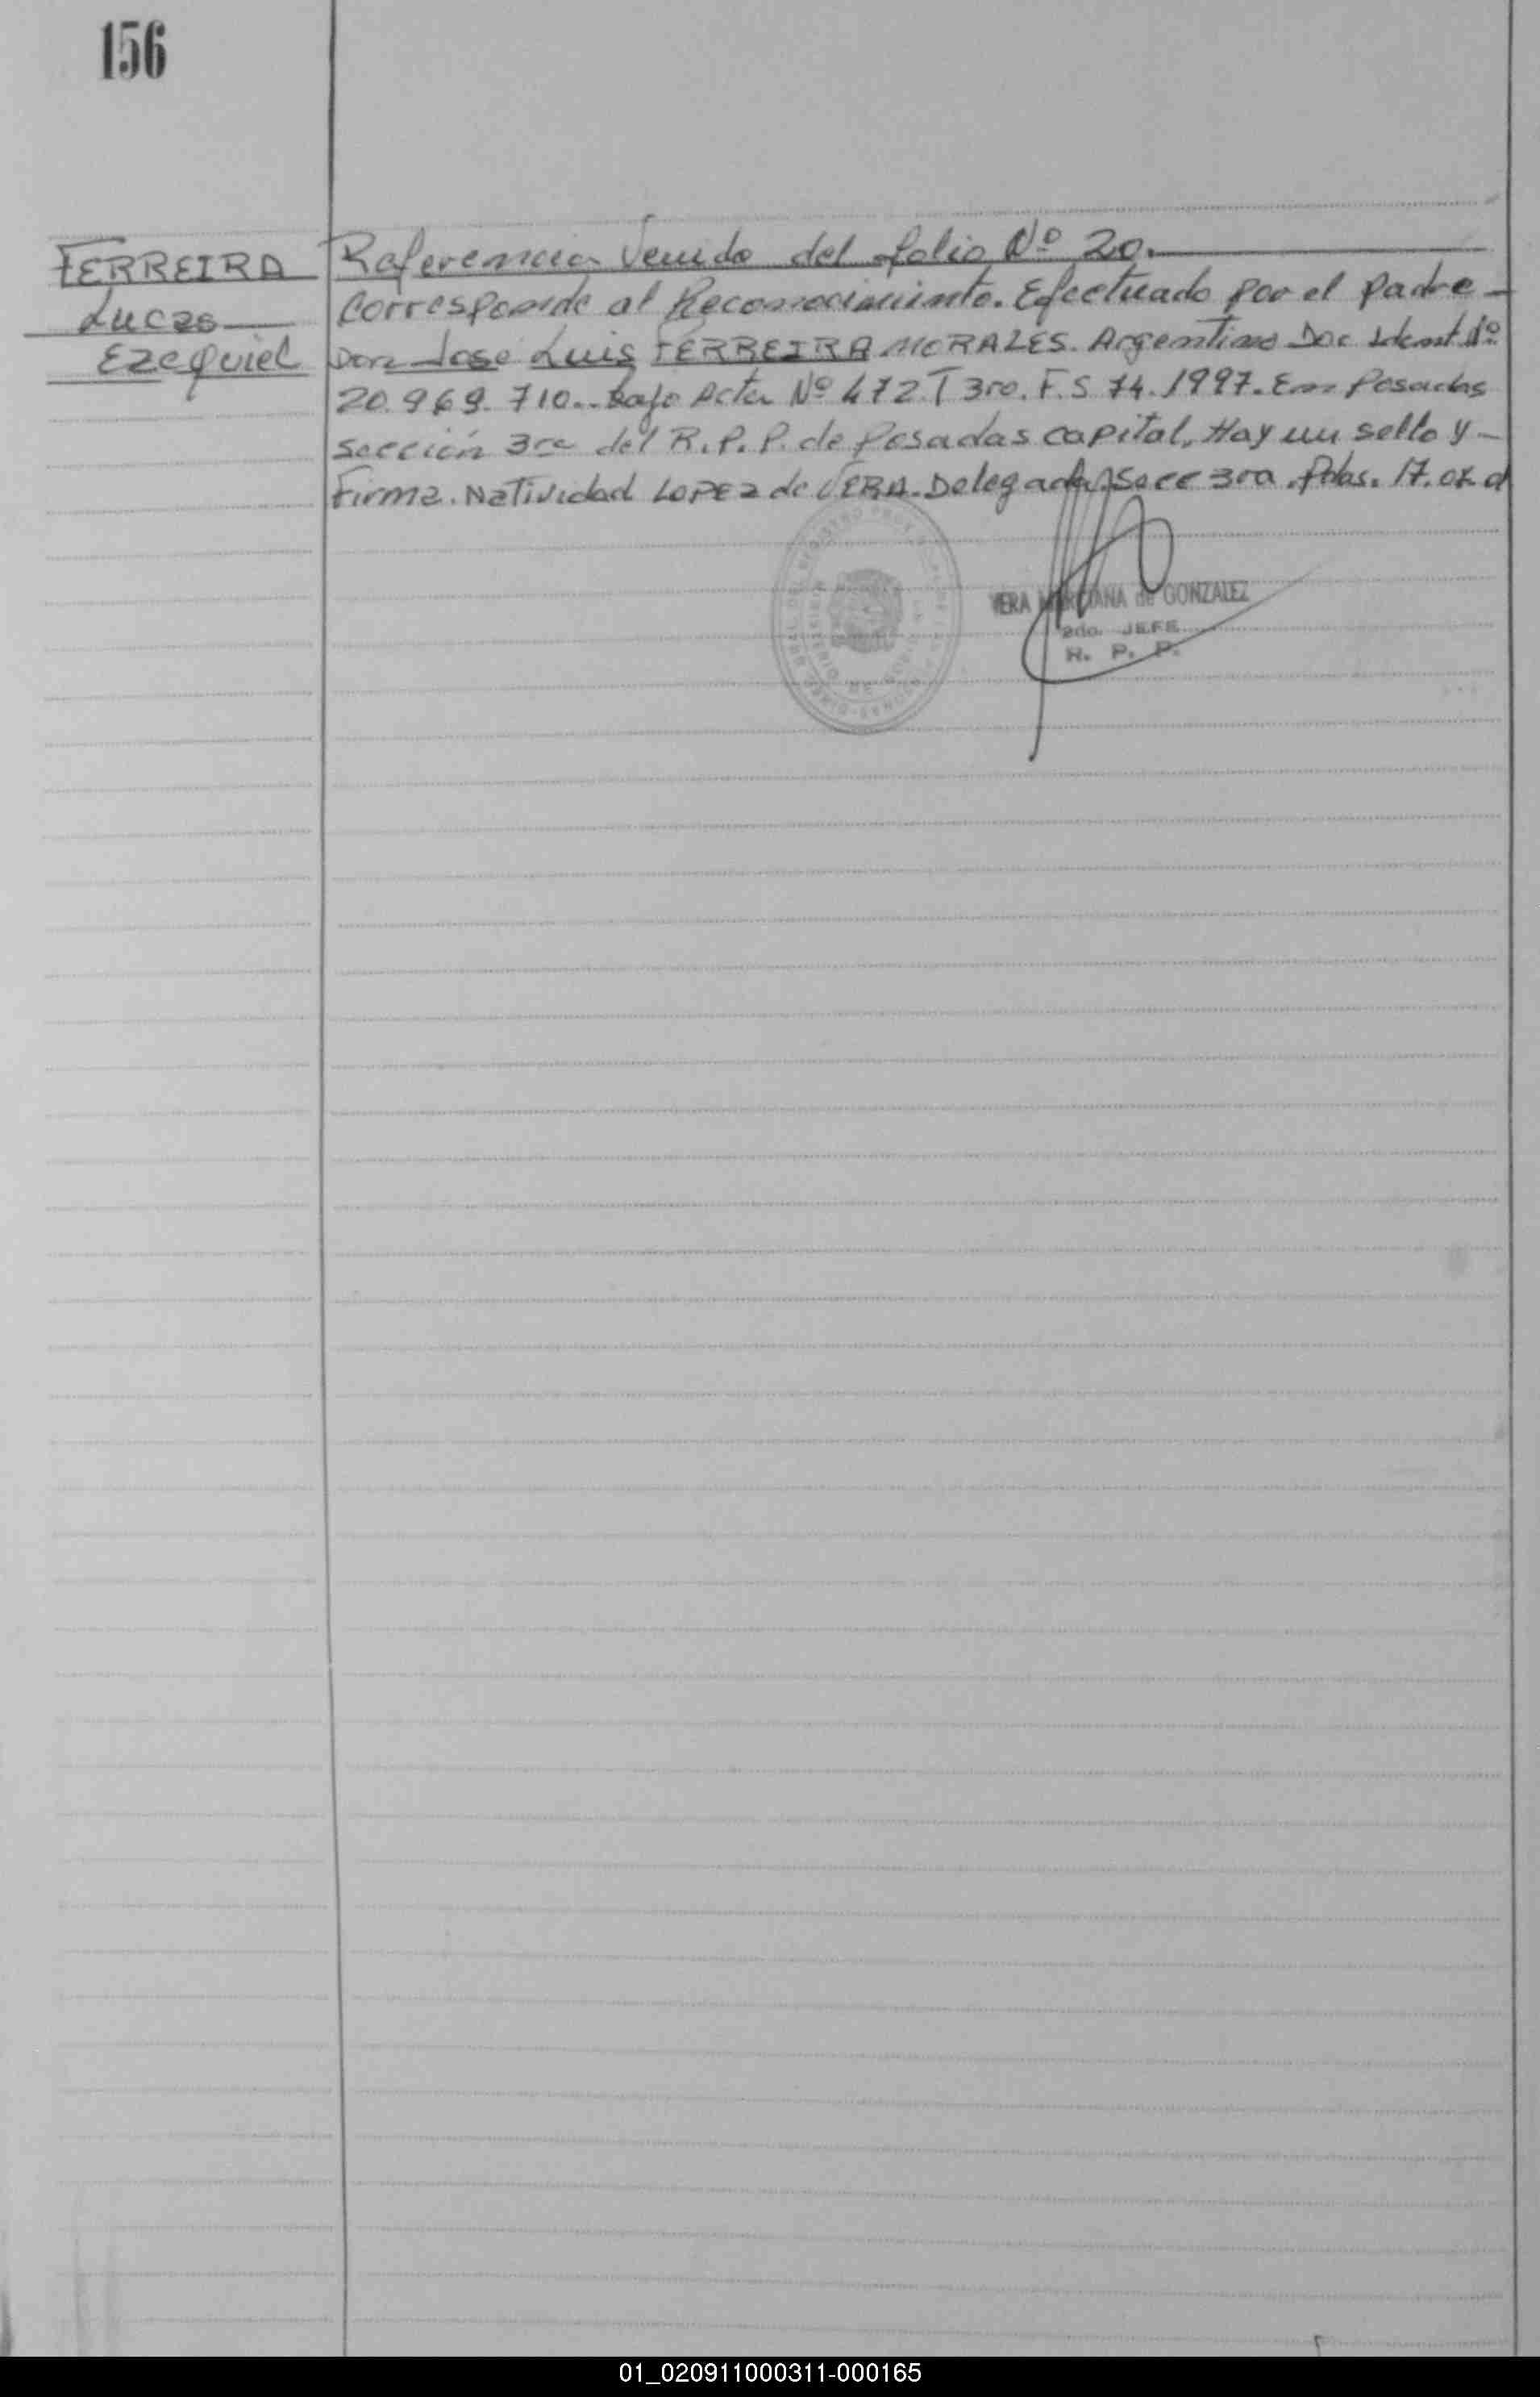 156
FERREIRA
Lucas
Ezequiel
Referencia Venida del folio Nº 20.
Corresponde al Reconocimiento. Efectuado por el padre
Don José Luis FERREIRA MORALES. Argentino Doc Ident Nº
20.969.710.. Bajo Acta Nº 472. T 3ro. F.S 74. 1997. En Posadas
Sección 3ra del R.P.P. de Posadas capital, Hay un sello y
Firma. Natividad LOPEZ de VERA. Delegada Secc 3ra. Pdas. 17.
VERA MARCIANA de GONZALEZ
2do. JEFE
R. P. P.
01_020911000311-000165